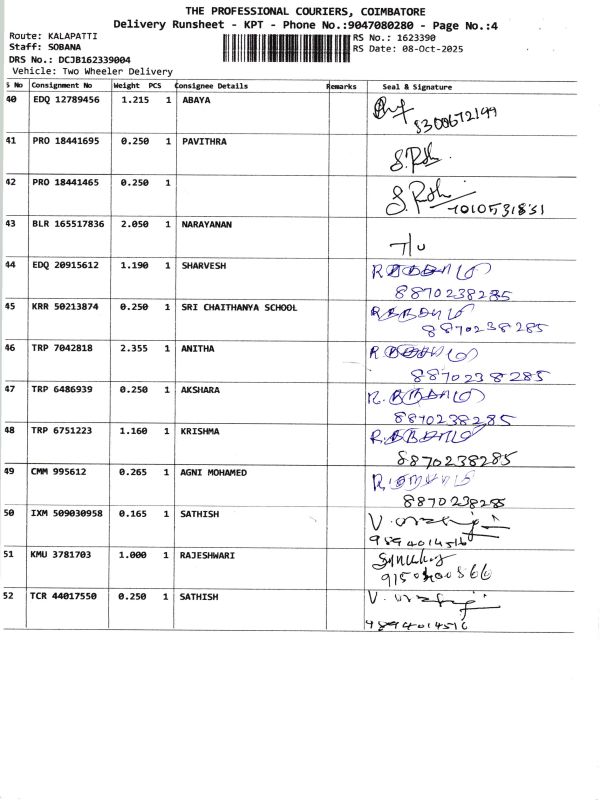 THE PROFESSIONAL COURIERS, COIMBATORE
Delivery Runsheet - KPT - Phone No.:9047080280 - Page No.:4
Route: KALAPATTI
Staff: SOBANA
DRS No.: DCJB162339004
Vehicle: Two Wheeler Delivery
RS No.: 1623390
RS Date: 08-Oct-2025
S No Consignment No Weight PCS Consignee Details Remarks Seal & Signature
40 EDQ 12789456 1.215 1 ABAYA
8300672199
41 PRO 18441695 0.250 1 PAVITHRA
42 PRO 18441465 0.250 1
7010531831
43 BLR 165517836 2.050 1 NARAYANAN
44 EDQ 20915612 1.190 1 SHARVESH
8870238285
45 KRR 50213874 0.250 1 SRI CHAITHANYA SCHOOL
8870238285
46 TRP 7042818 2.355 1 ANITHA
8870238285
47 TRP 6486939 0.250 1 AKSHARA
8870238285
48 TRP 6751223 1.160 1 KRISHMA
8870238285
49 CMM 995612 0.265 1 AGNI MOHAMED
8870238285
50 IXM 509030958 0.165 1 SATHISH
9894014516
51 KMU 3781703 1.000 1 RAJESHWARI
52 TCR 44017550 0.250 1 SATHISH
9894014516